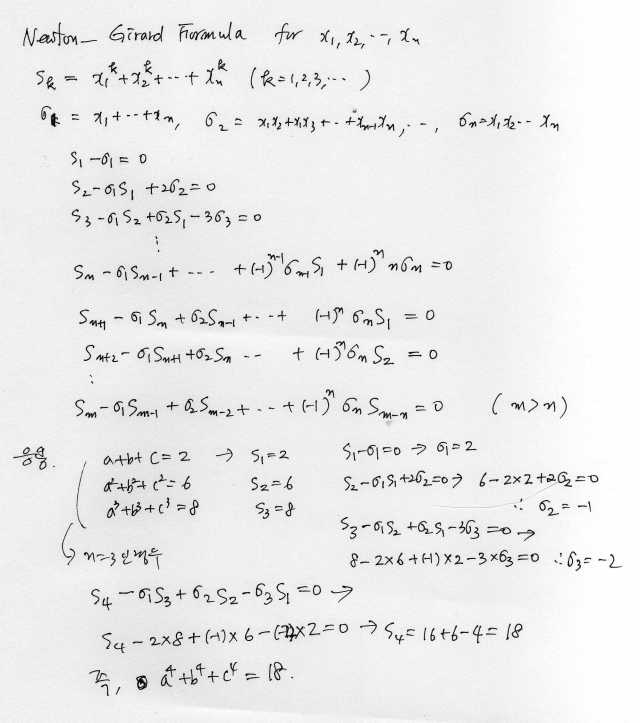 Newton - Girard Formula for x₁, x₂, ..., xₙ
Sₖ = x₁ᵏ + x₂ᵏ + ... + xₙᵏ (k = 1, 2, 3, ...)
σₖ = x₁ + ... + xₙ, σ₂ = x₁x₂ + x₁x₃ + ... + xₙ₋₁xₙ, ..., σₙ = x₁x₂ ... xₙ
S₁ - σ₁ = 0
S₂ - σ₁S₁ + 2σ₂ = 0
S₃ - σ₁S₂ + σ₂S₁ - 3σ₃ = 0
⋮
Sₙ - σ₁Sₙ₋₁ + ... + (-1)ⁿ⁻¹ σₙ₋₁ S₁ + (-1)ⁿ nσₙ = 0
Sₙ₊₁ - σ₁Sₙ + σ₂Sₙ₋₁ + ... + (-1)ⁿ σₙS₁ = 0
Sₙ₊₂ - σ₁Sₙ₊₁ + σ₂Sₙ ... + (-1)ⁿ σₙ S₂ = 0
⋮
Sₘ - σ₁Sₘ₋₁ + σ₂Sₘ₋₂ + ... + (-1)ⁿ σₙ Sₘ₋ₙ = 0 (m > n)
응용. a + b + c = 2 → S₁ = 2 S₁ - σ₁ = 0 → σ₁ = 2
a² + b² + c² = 6 S₂ = 6 S₂ - σ₁S₁ + 2σ₂ = 0 → 6 - 2×2 + 2σ₂ = 0
∴ σ₂ = -1
a³ + b³ + c³ = 8 S₃ = 8 S₃ - σ₁S₂ + σ₂S₁ - 3σ₃ = 0 →
n=3인 경우 8 - 2×6 + (-1)×2 - 3×σ₃ = 0 ∴ σ₃ = -2
S₄ - σ₁S₃ + σ₂S₂ - σ₃S₁ = 0 →
S₄ - 2×8 + (-1)×6 - (-2)×2 = 0 → S₄ = 16 + 6 - 4 = 18
즉, a⁴ + b⁴ + c⁴ = 18.